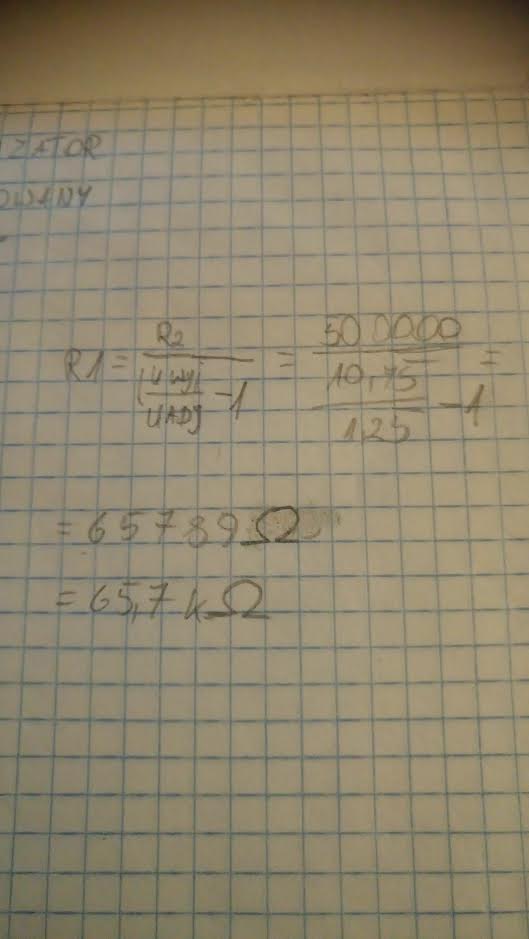 ZATOR
OWANY
R1 = R2 / ((UWY / UADJ) - 1) = 500000 / (10,75 / 1,25 - 1) =
= 65789Ω
= 65,7 kΩ